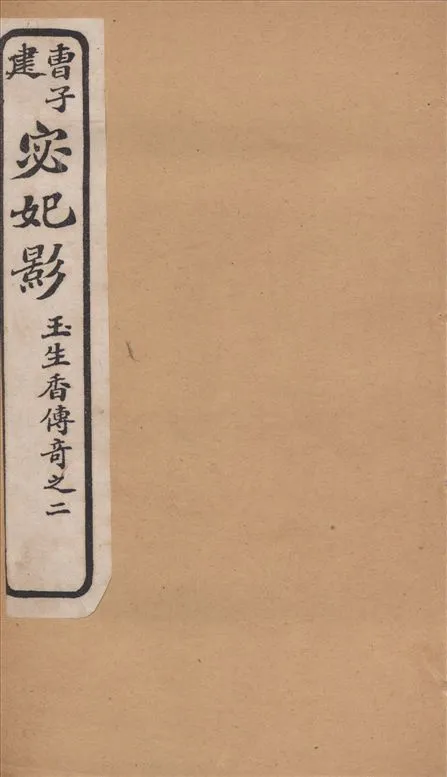 曹子建
宓妃影
玉生香傳奇之二